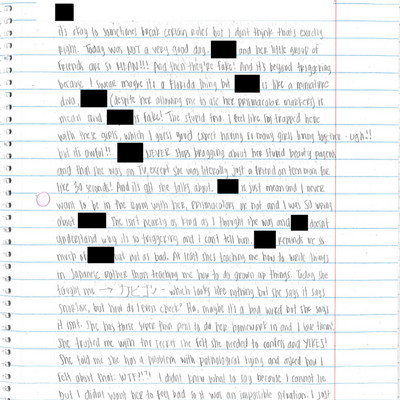 its okay to sometimes break certain rules but I dont think thats exactly
right. Today was not a very good day. and her little group of
friends are so MEAN!!! And then they're fake! And its beyond triggering
because I swear maybe its a Florida thing but is like a miniature
diva, (despite her allowing me to use her prismacolor markers) is
mean and is fake! The stupid trio. I feel like Im trapped here
with these girls, which I guess good expect having so many girls living together - UGH!!
but its awful!! NEVER stops bragging about her stupid beauty pageant
and that she was on TV, except she was literally just a friend on teen mom for
like 30 seconds! And its all she talks about. is just mean and I never
want to be in the room with her, prismacolors or not and I was so wrong
about She isn't nearly as kind as I thought she was and doesn't
understand why its so triggering and I can't tell him. reminds me so
much of but not as bad. At least shes teaching me how to write things
in Japanese rather than teaching me how to do grown up things. Today she
taught me → カビゴン - which looks like nothing but she says it says
snorlax, but how do I even check? Ha, maybe its a bad word but she says
it isnt. She has some super fun pens to do her homework in and I love them!
She trusted me with the secret she felt she needed to confess and YIKES!
She told me she has a problem with pathological lying and asked how I
felt about that. WTF?!?! I didnt know what to say because I cannot lie
but I didnt want her to feel bad so it was an impossible situation. I just